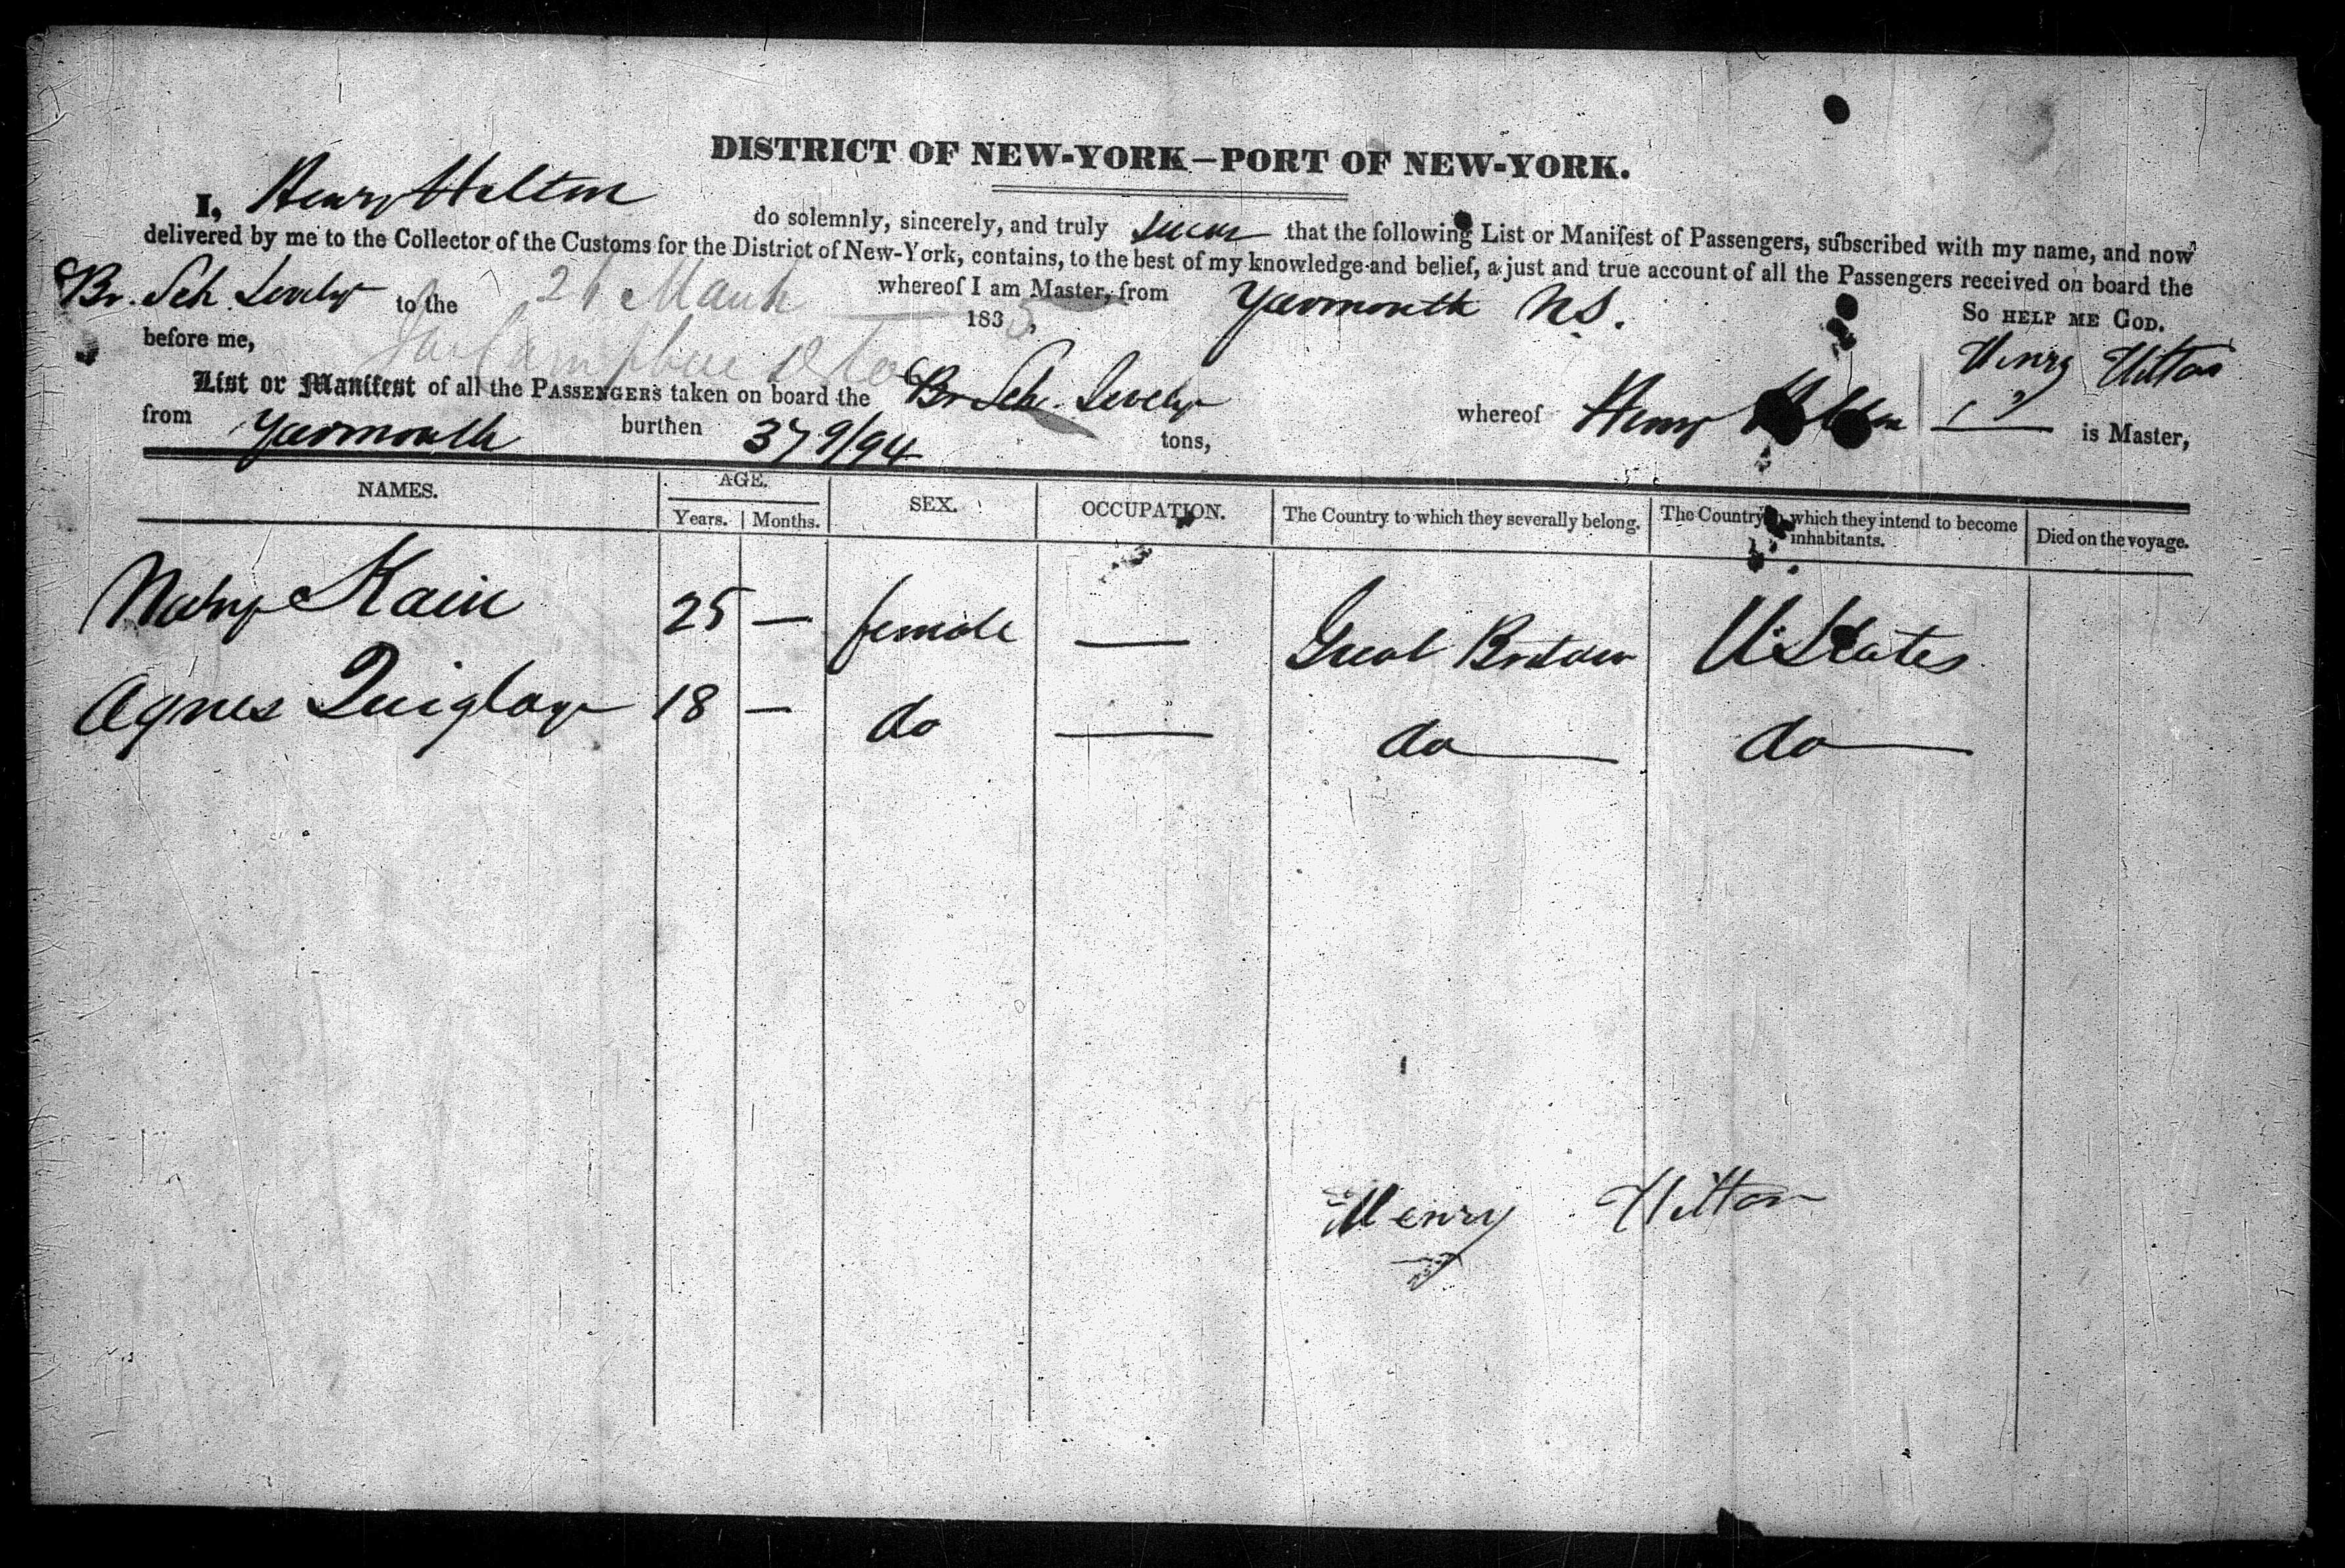 DISTRICT OF NEW-YORK—PORT OF NEW-YORK.
I, Henry Hilton do solemnly, sincerely, and truly swear that the following List or Manifest of Passengers, subscribed with my name, and now
delivered by me to the Collector of the Customs for the District of New-York, contains, to the best of my knowledge and belief, a just and true account of all the Passengers received on board the
Br. Sch Lively whereof I am Master, from Yarmouth NS.
to the 26 March 1835, So HELP ME GOD.
before me, Henry Hilton
List or Manifest of all the PASSENGERS taken on board the Br Sch. Lively whereof Henry Hilton is Master,
from Yarmouth burthen 37 9/94 tons,
NAMES. AGE. SEX. OCCUPATION. The Country to which they severally belong. The Country which they intend to become inhabitants. Died on the voyage.
Years. Months.
Mary Kain 25 — female — Great Britain U States
Agnes Quiglay 18 — do — do — do —
Henry Hilton